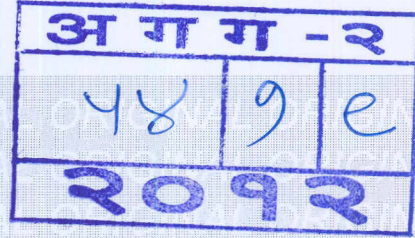 अगग-२
५४ १ ९
२०१२